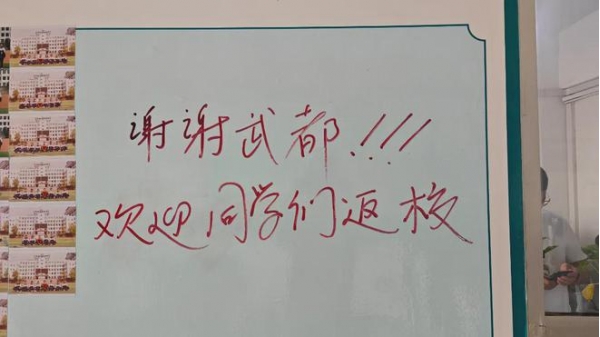 谢谢武都!!!!
欢迎同学们返校